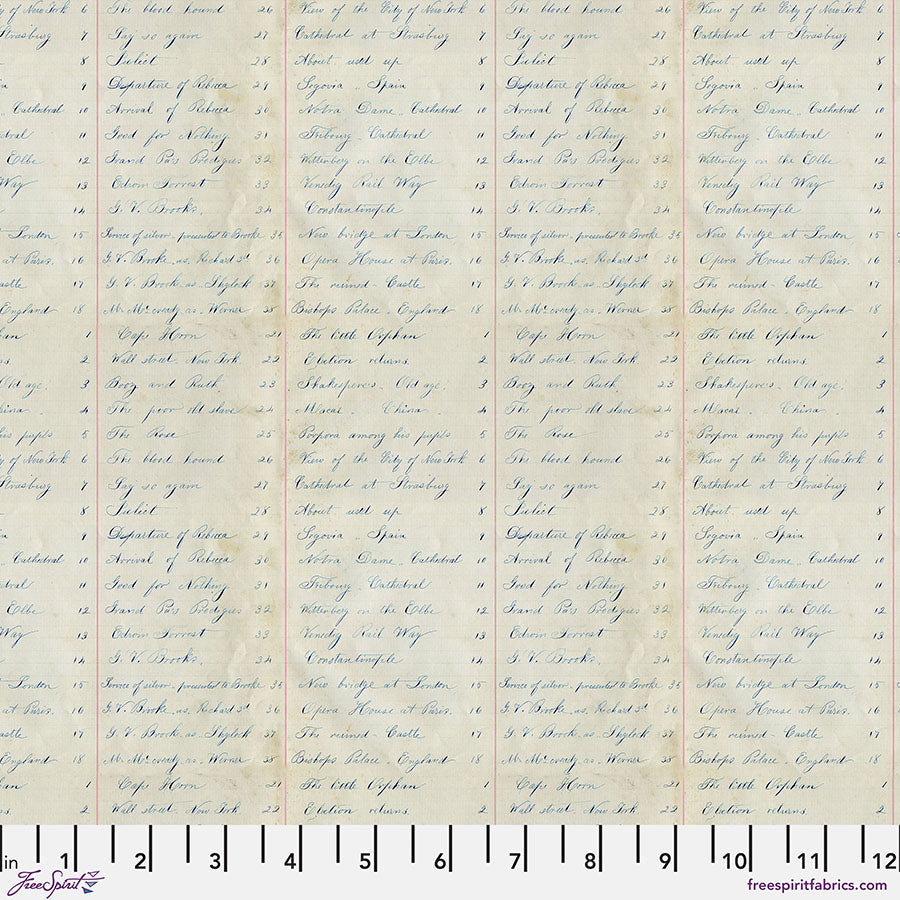 of New York 6 The blood hound 26 View of the City of New York 6 The blood hound 26 View of the City of New York 6
Strasburg 7 Say so again 27 Cathedral at Strasburg 7 Say so again 27 Cathedral at Strasburg 7
8 Juliet 28 About used up 8 Juliet 28 About used up 8
9 Departure of Rebecca 29 Segovia .. Spain 9 Departure of Rebecca 29 Segovia .. Spain 9
Cathedral 10 Arrival of Rebecca 30 Notra Dame. Cathedral 10 Arrival of Rebecca 30 Notra Dame. Cathedral 10
dral 11 Good for Nothing 31 Fribourg. Cathedral 11 Good for Nothing 31 Fribourg. Cathedral 11
Elbe 12 Grand Pa's Prodigies 32 Wittenberg on the Elbe 12 Grand Pa's Prodigies 32 Wittenberg on the Elbe 12
Way 13 Edwin Forrest 33 Rail Way 13 Edwin Forrest 33 Rail Way 13
14 G. V. Brooke. 34 Constantinople 14 G. V. Brooke. 34 Constantinople 14
London 15 of silver. presented to Brooke 35 New bridge at London 15 of silver. presented to Brooke 35 New bridge at London 15
at Paris. 16 G V. Brooke. as. Richard 3d 36 Opera House at Paris. 16 G V. Brooke. as. Richard 3d 36 Opera House at Paris. 16
astle 17 G. V. Brooke as. Shylock 37 The ruined - Castle 17 G. V. Brooke as. Shylock 37 The ruined - Castle 17
England 18 Mr. as. Werner 38 Bishops Palace. England 18 Mr. as. Werner 38 Bishops Palace. England 18
an 1 Cape Horn 21 The little Orphan 1 Cape Horn 21 The little Orphan 1
s. 2 Wall street. New York 22 Election returns. 2 Wall street. New York 22 Election returns. 2
Old age. 3 Booz and Ruth 23 Shakesperes. Old age. 3 Booz and Ruth 23 Shakesperes. Old age. 3
hina. 4 The poor old slave 24 Macai. China. 4 The poor old slave 24 Macai. China. 4
his pupils 5 The Rose 25 Porpora among his pupils 5 The Rose 25 Porpora among his pupils 5
of New York 6 The blood hound 26 View of the City of New York 6 The blood hound 26 View of the City of New York 6
Strasburg 7 Say so again 27 Cathedral at Strasburg 7 Say so again 27 Cathedral at Strasburg 7
8 Juliet 28 About used up 8 Juliet 28 About used up 8
9 Departure of Rebecca 29 Segovia .. Spain 9 Departure of Rebecca 29 Segovia .. Spain 9
Cathedral 10 Arrival of Rebecca 30 Notra Dame. Cathedral 10 Arrival of Rebecca 30 Notra Dame. Cathedral 10
dral 11 Good for Nothing 31 Fribourg. Cathedral 11 Good for Nothing 31 Fribourg. Cathedral 11
Elbe 12 Grand Pa's Prodigies 32 Wittenberg on the Elbe 12 Grand Pa's Prodigies 32 Wittenberg on the Elbe 12
Way 13 Edwin Forrest 33 Rail Way 13 Edwin Forrest 33 Rail Way 13
14 G. V. Brooke. 34 Constantinople 14 G. V. Brooke. 34 Constantinople 14
London 15 of silver. presented to Brooke 35 New bridge at London 15 of silver. presented to Brooke 35 New bridge at London 15
at Paris. 16 G V. Brooke. as. Richard 3d 36 Opera House at Paris. 16 G V. Brooke. as. Richard 3d 36 Opera House at Paris. 16
astle 17 G. V. Brooke as. Shylock 37 The ruined - Castle 17 G. V. Brooke as. Shylock 37 The ruined - Castle 17
England 18 Mr. as. Werner 38 Bishops Palace. England 18 Mr. as. Werner 38 Bishops Palace. England 18
an 1 Cape Horn 21 The little Orphan 1 Cape Horn 21 The little Orphan 1
s. 2 Wall street. New York 22 Election returns. 2 Wall street. New York 22 Election returns. 2
in 1 2 3 4 5 6 7 8 9 10 11 12
FreeSpirit
freespiritfabrics.com